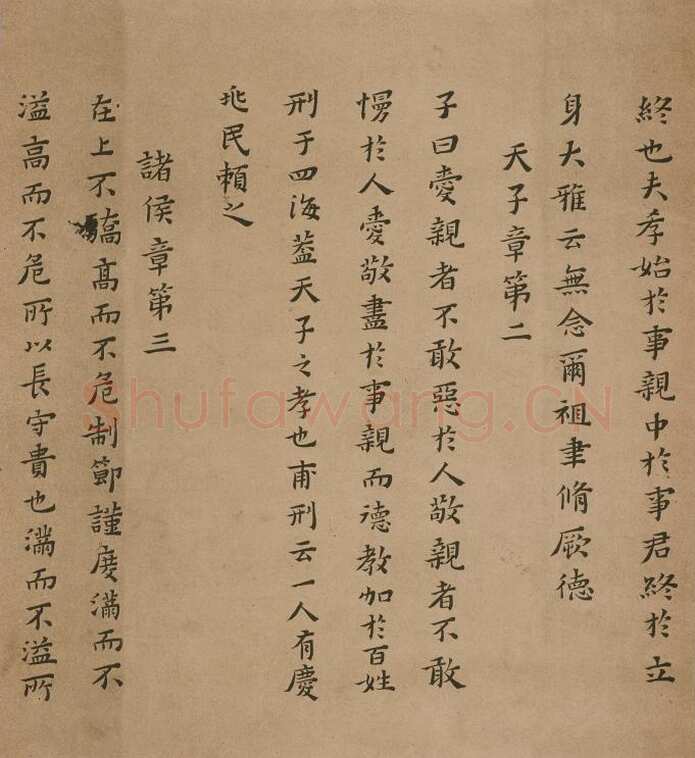 終也夫孝始於事親中於事君終於立
身大雅云無念爾祖聿脩厥德
天子章第二
子曰愛親者不敢惡於人敬親者不敢
慢於人愛敬盡於事親而德教加於百姓
刑于四海蓋天子之孝也甫刑云一人有慶
兆民賴之
諸侯章第三
在上不驕高而不危制節謹度滿而不
溢高而不危所以長守貴也滿而不溢所
Shufawang.CN